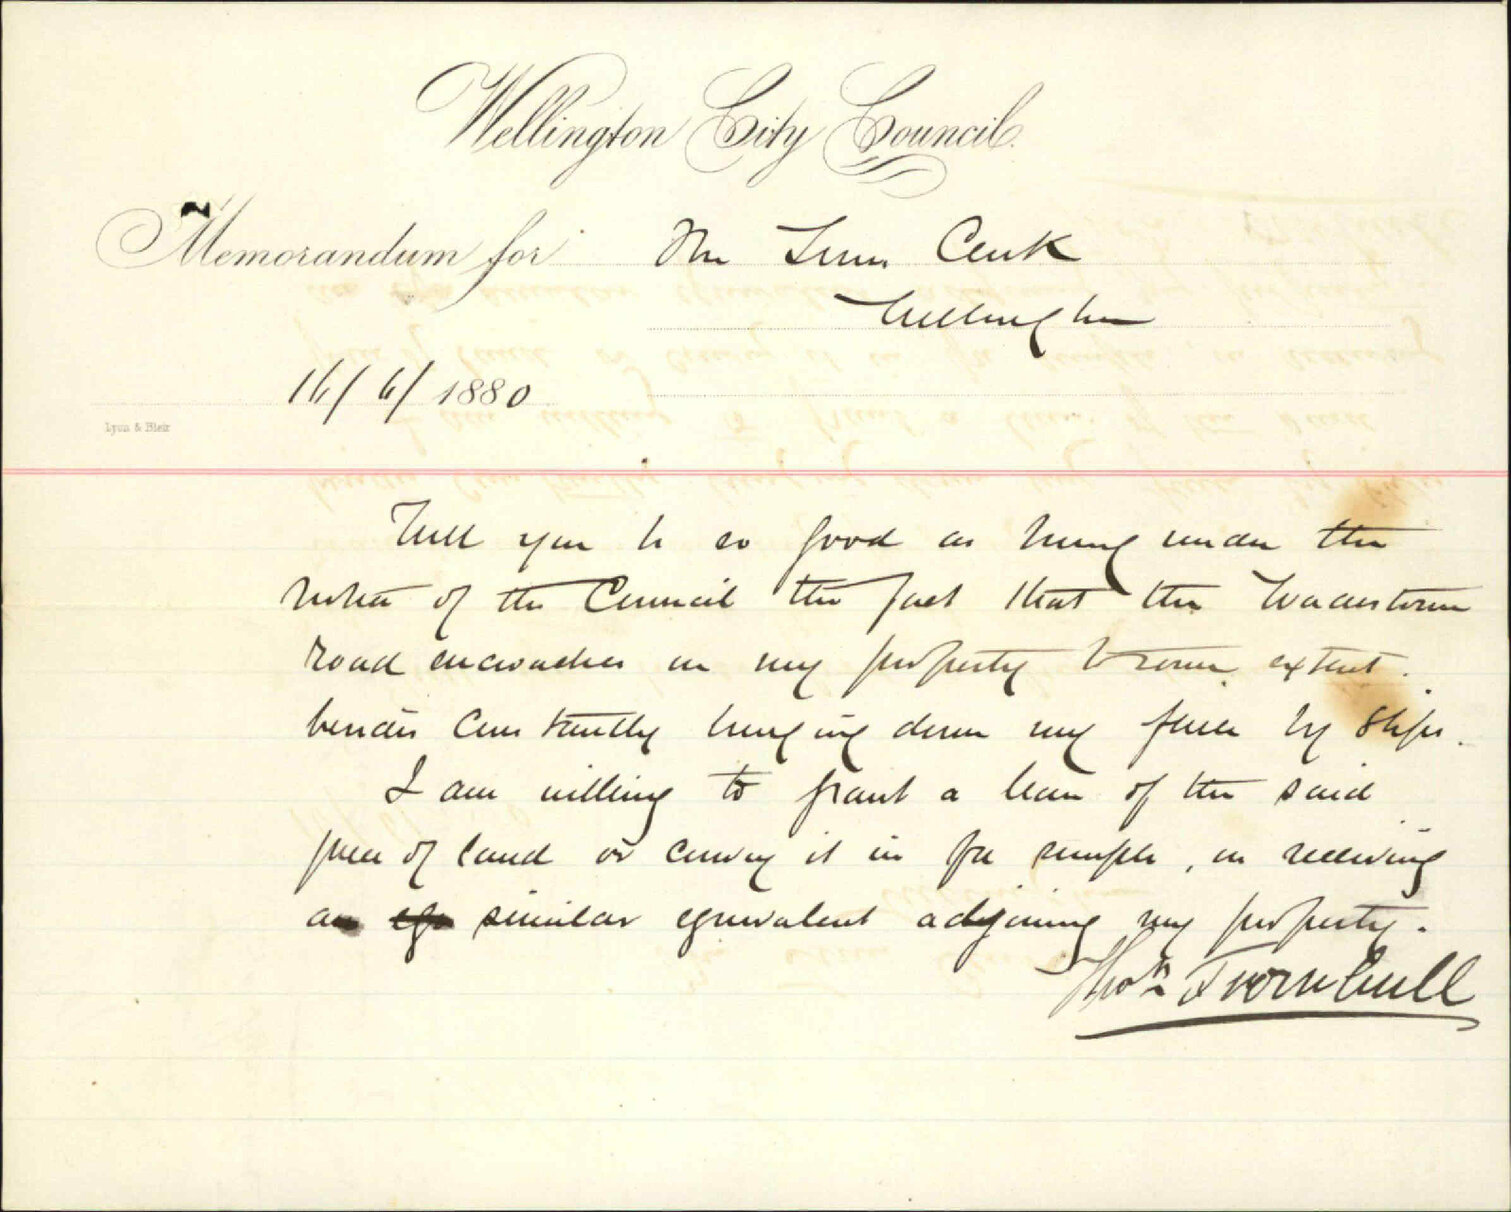 Wellington City Council.
Memorandum for The Town Clerk
Wellington
16/6/1880
Lyon & Blair
Will you be so good as bring under the
notice of the Council the fact that the Wadestown
road encroaches on my property to some extent.
besides constantly bringing down my fence by slips.
I am willing to grant a lease of the said
piece of land or convey it in fee simple, on receiving
a similar equivalent adjoining my property.
Thos Turnbull